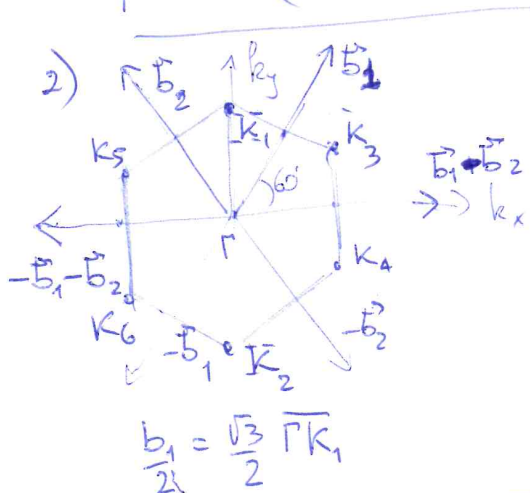 2)
b⃗₂
k_y
b⃗₁
K₅
K₁
K₃
60°
b⃗₁ b⃗₂
k_x
Γ
-b⃗₁-b⃗₂
K₄
K₆
-b⃗₁
K₂
-b⃗₂
b₁/2 = √3/2 ΓK₁